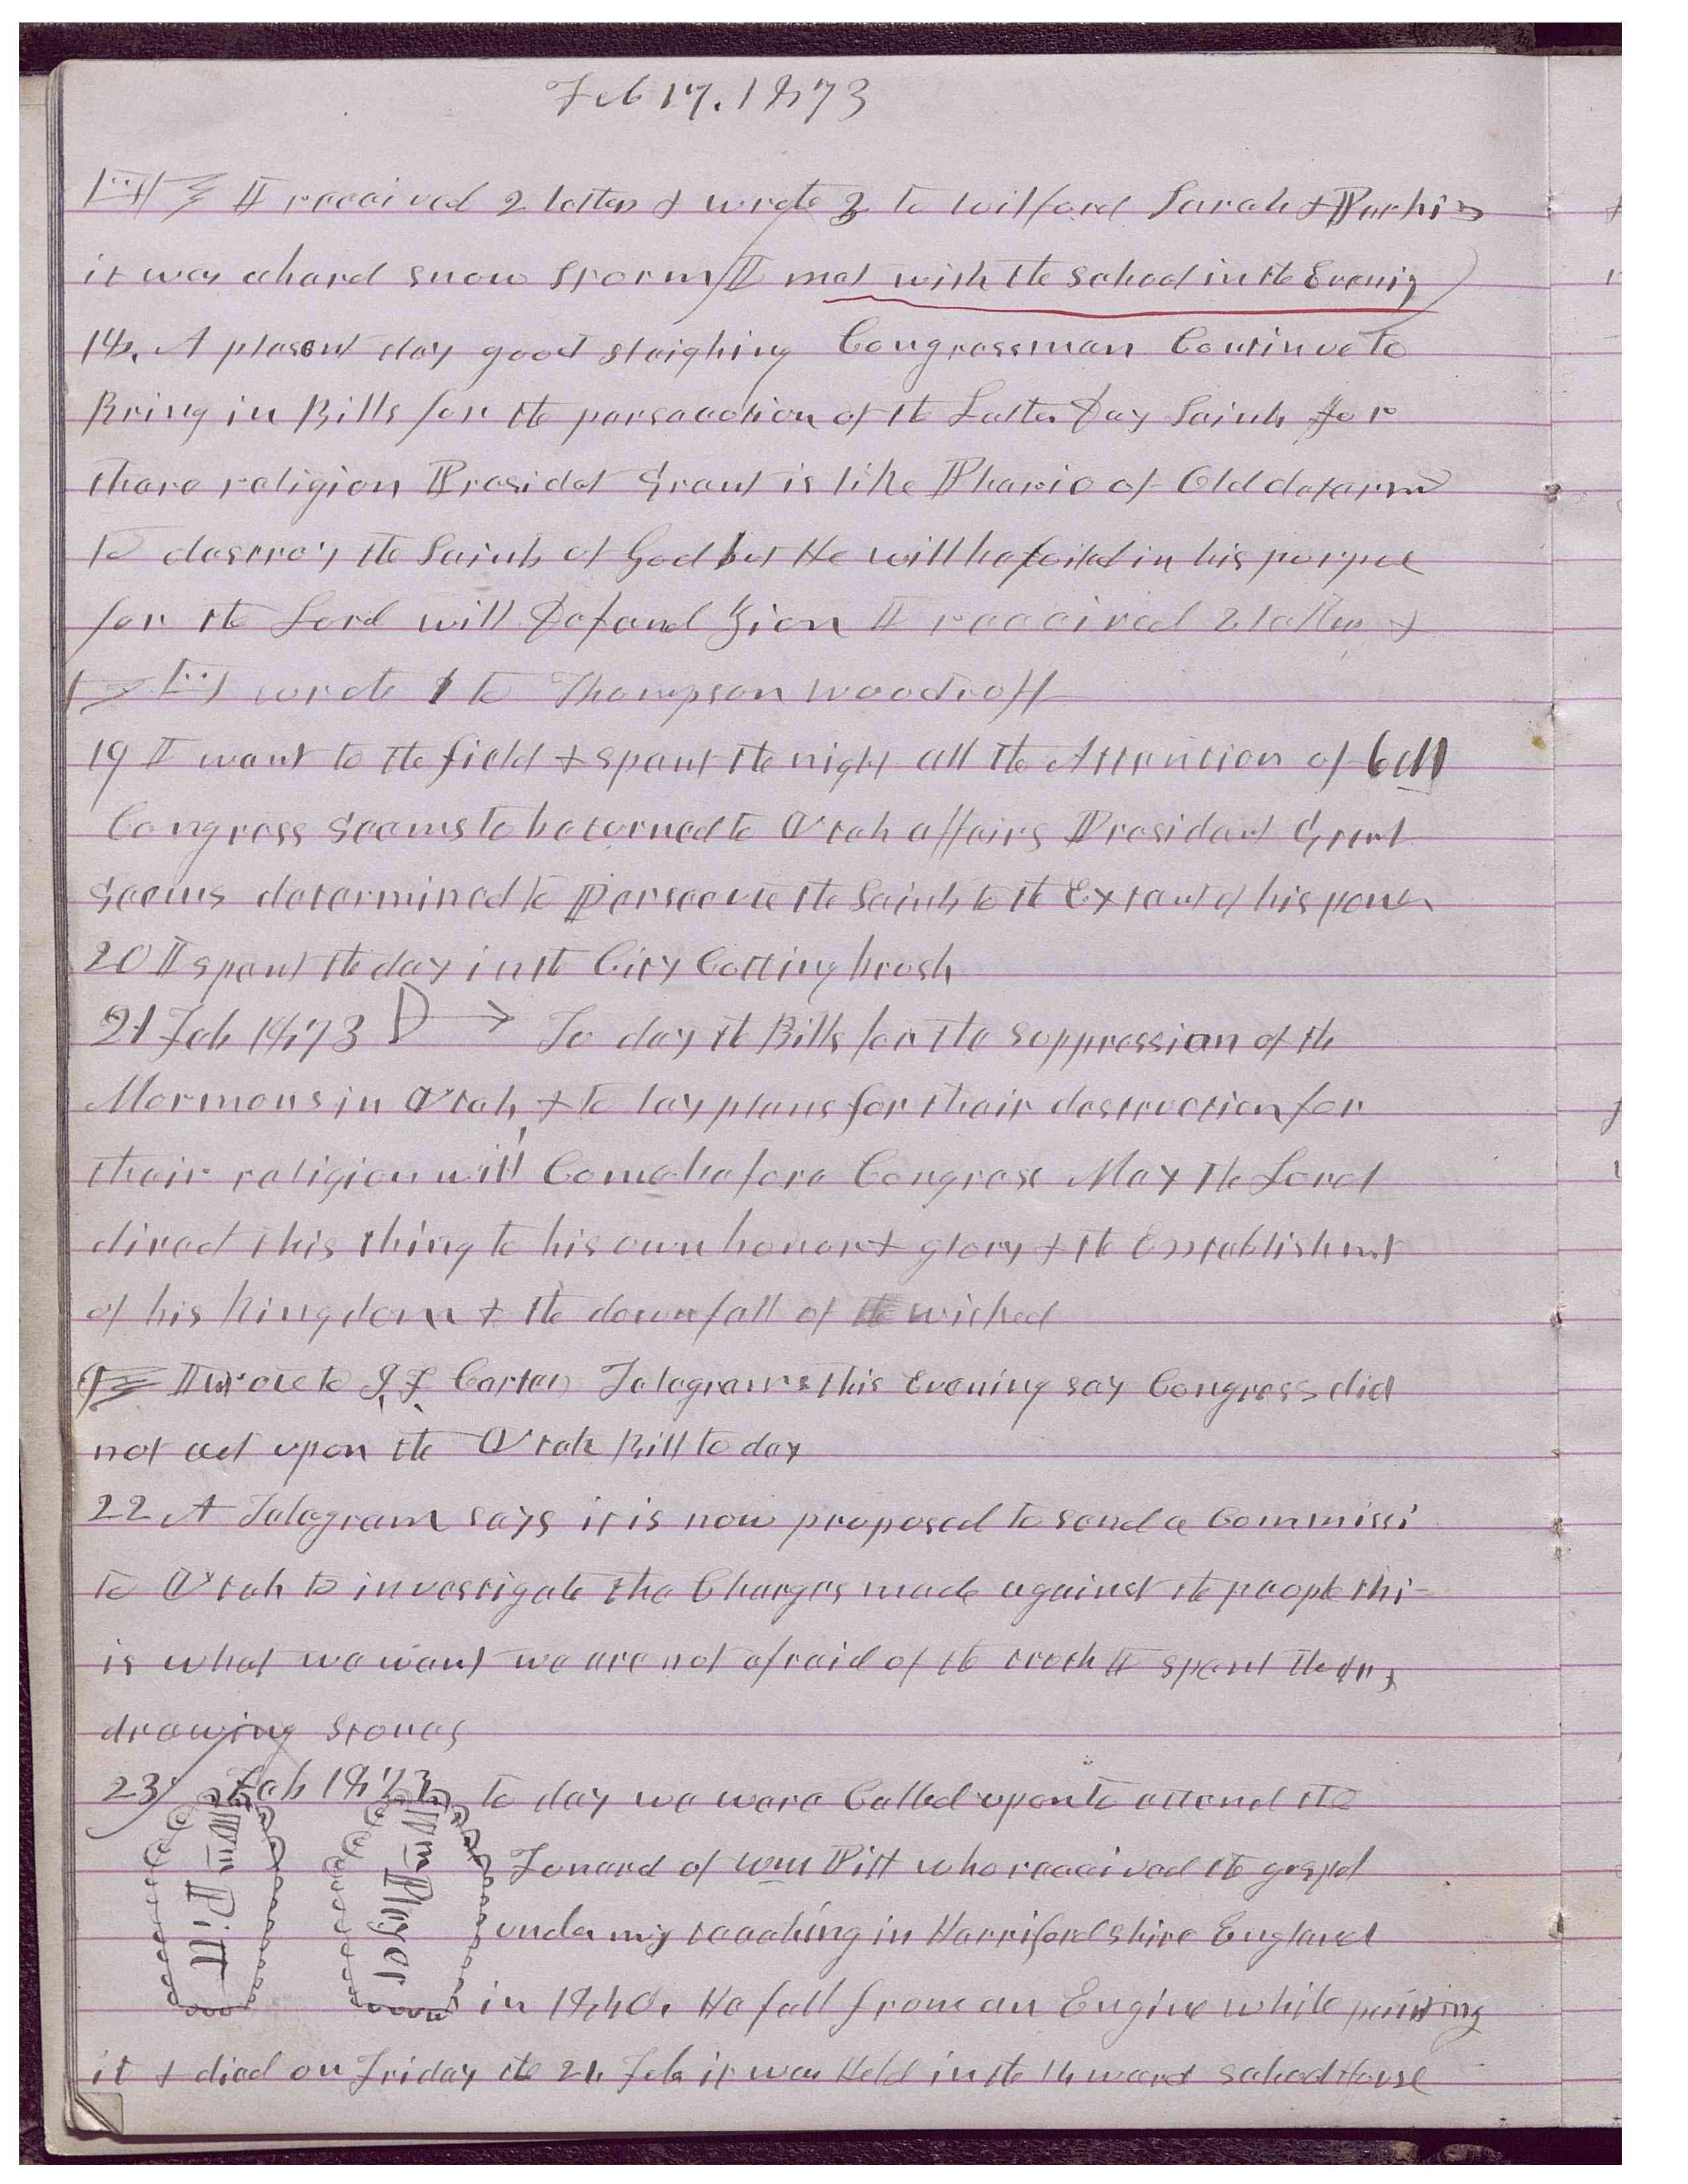 Feb 17. 1873
I received 2 letters & wrote 3 to Wilford Sarah & Parkins
it was a hard snow storm I met with the school in the Evenig
18. A plasent day good slaighing Congressman Continue to
Bring in Bills for the persecution of the Latter Day Saints for
thare religion Presidet Grant is like Phario of Old detarmd
to destroy the Saints of God but He will be foiled in his porpse
for the Lord will Defend Zion I received 2 letters &
wrote 1 to Thompson Woodruff
19 I went to the field & spent the night all the Attention of
Congress seems to be turned to Utah affairs President Grant
seems determined to Persecute the Saints to the Extent of his power
20 I spent the day in the City Cutting brush
21 Feb 1873 To day the Bills for the suppression of the
Mormons in Utah, & to lay plans for their destruction for
their religion will Come before Congress May the Lord
direct this thing to his own honor & glory & the Establishmet
of his kingdom & the downfall of the wicked
I wrote to I. F. Carter Telegrams this Evening say Congress did
not act upon the Utah Bill to day
22 A Telegram says it is now proposed to send a Commissi
to Utah to investigate the Charges made against the people thi-
is what we want we are not afraid of the truth I spent the day
drawing stones
23 Feb 1873 to day we ware Called upon to attend the
Funeral of Wm Pitt who received the gospel
under my teaching in Harrifordshire England
in 1840. He fell from an Engine while painting
it & died on Friday the 21, Feb it was Held in the 14 ward school House
Wm Pitt
Wm Player